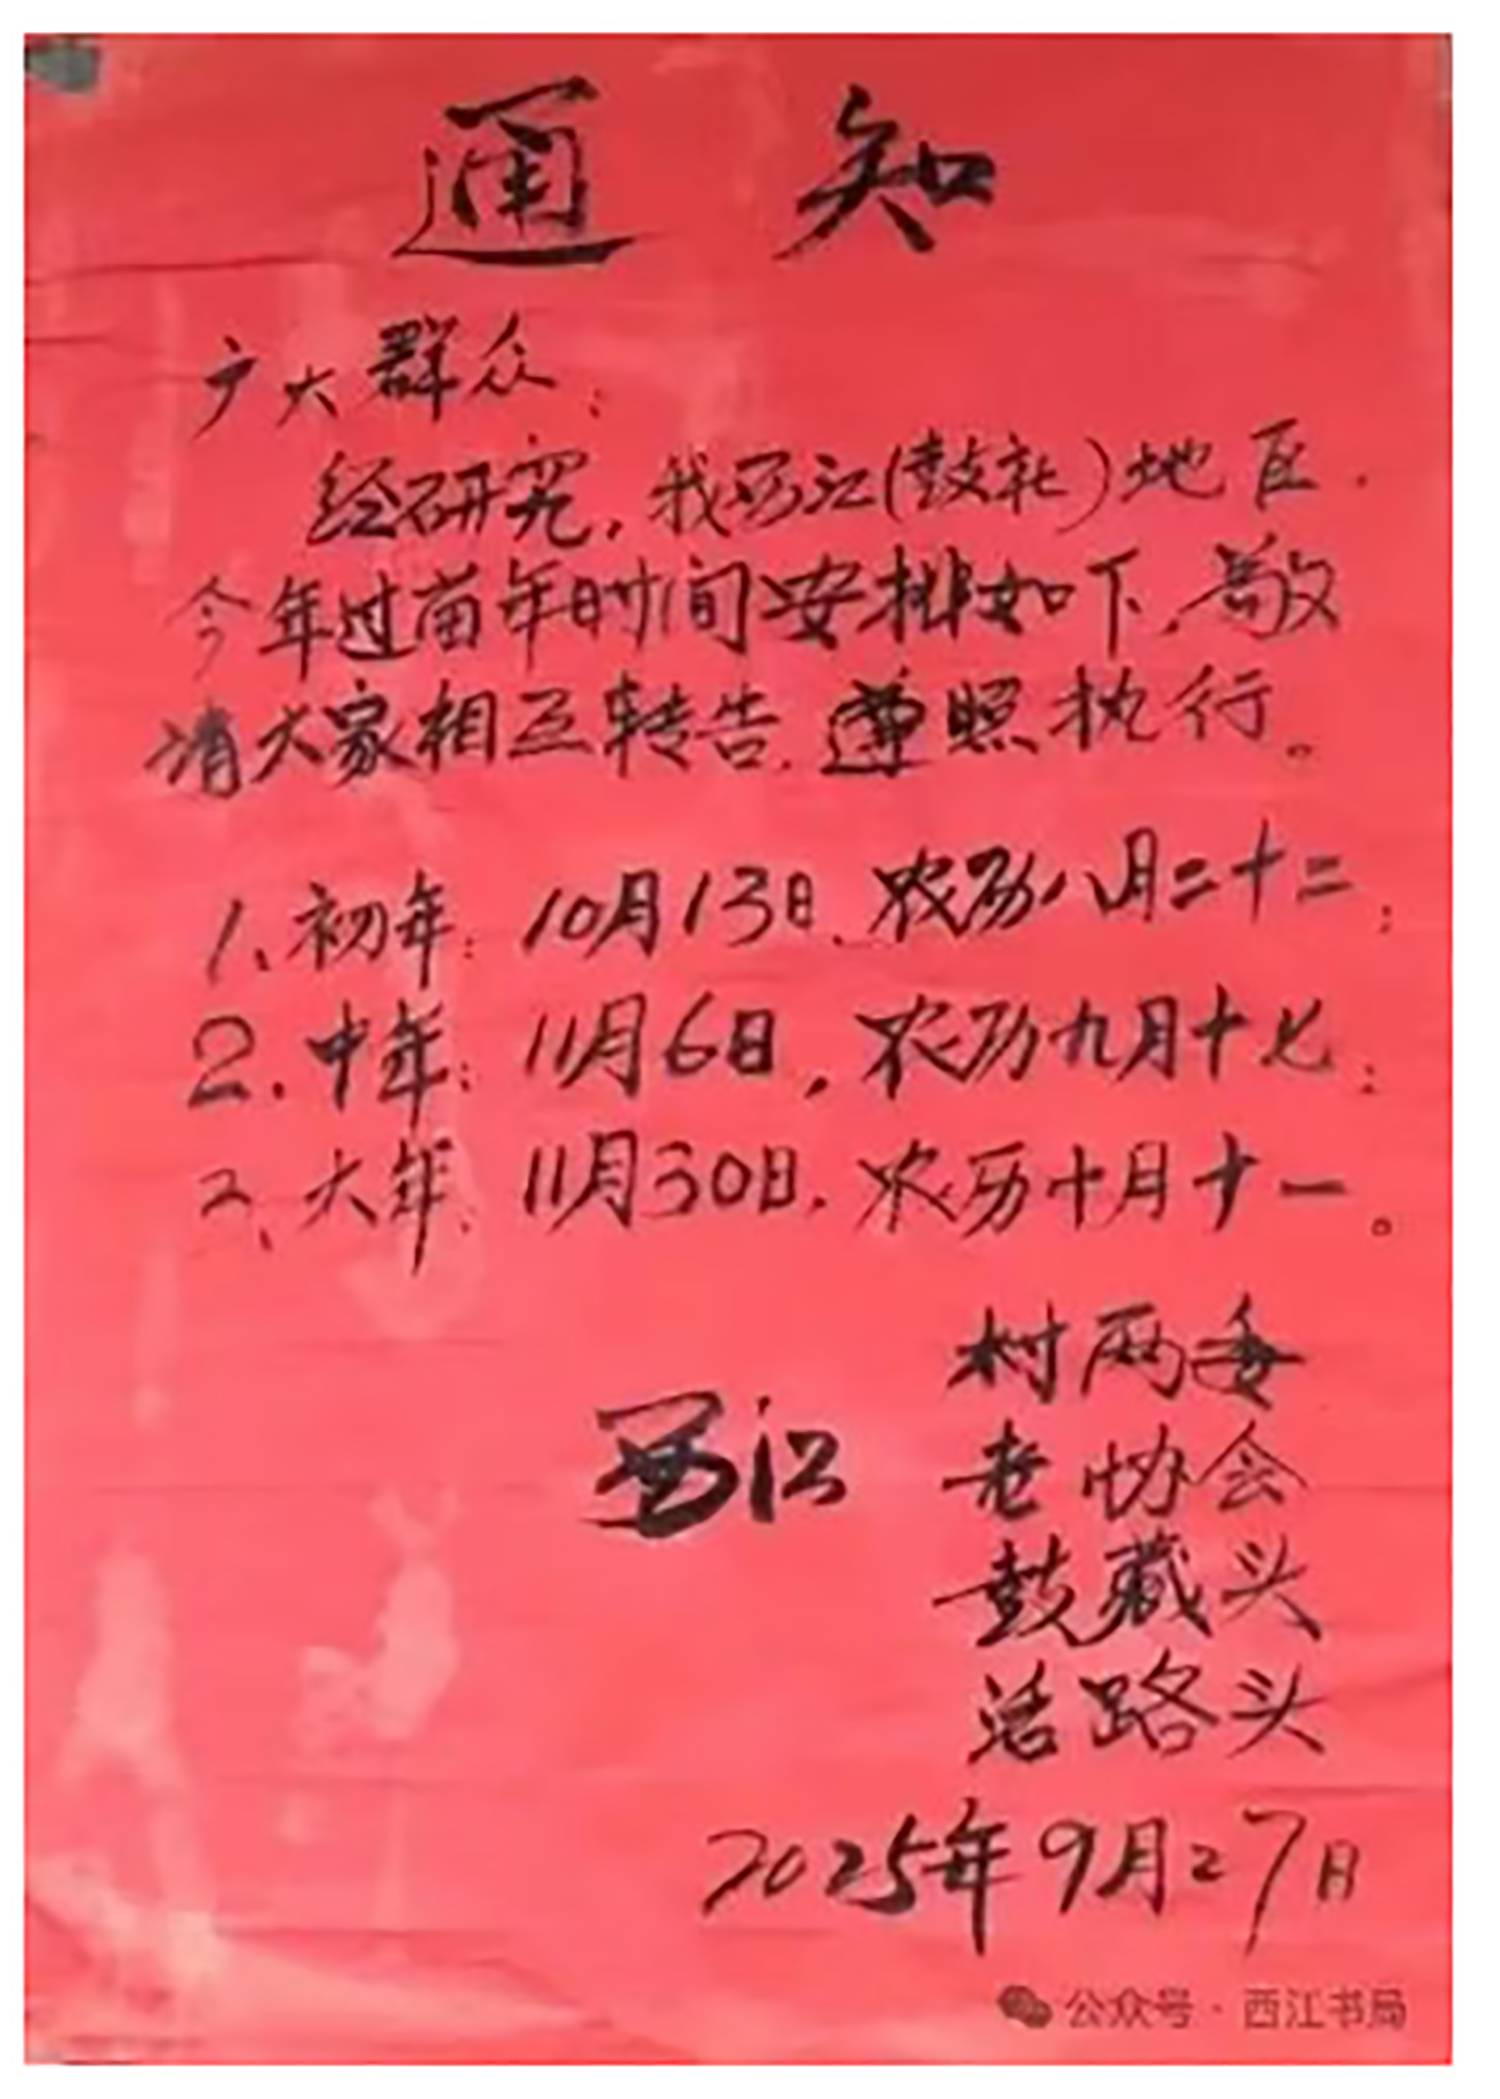 通知
广大群众：
经研究，我西江(鼓社)地区，
今年过苗年时间安排如下，敬
请大家相互转告，遵照执行。
1、初年：10月13日、农历八月二十二；
2、中年：11月6日，农历九月十七；
3、大年：11月30日，农历十月十一。
村两委
西江 老协会
鼓藏头
活路头
2025年9月27日
公众号·西江书局